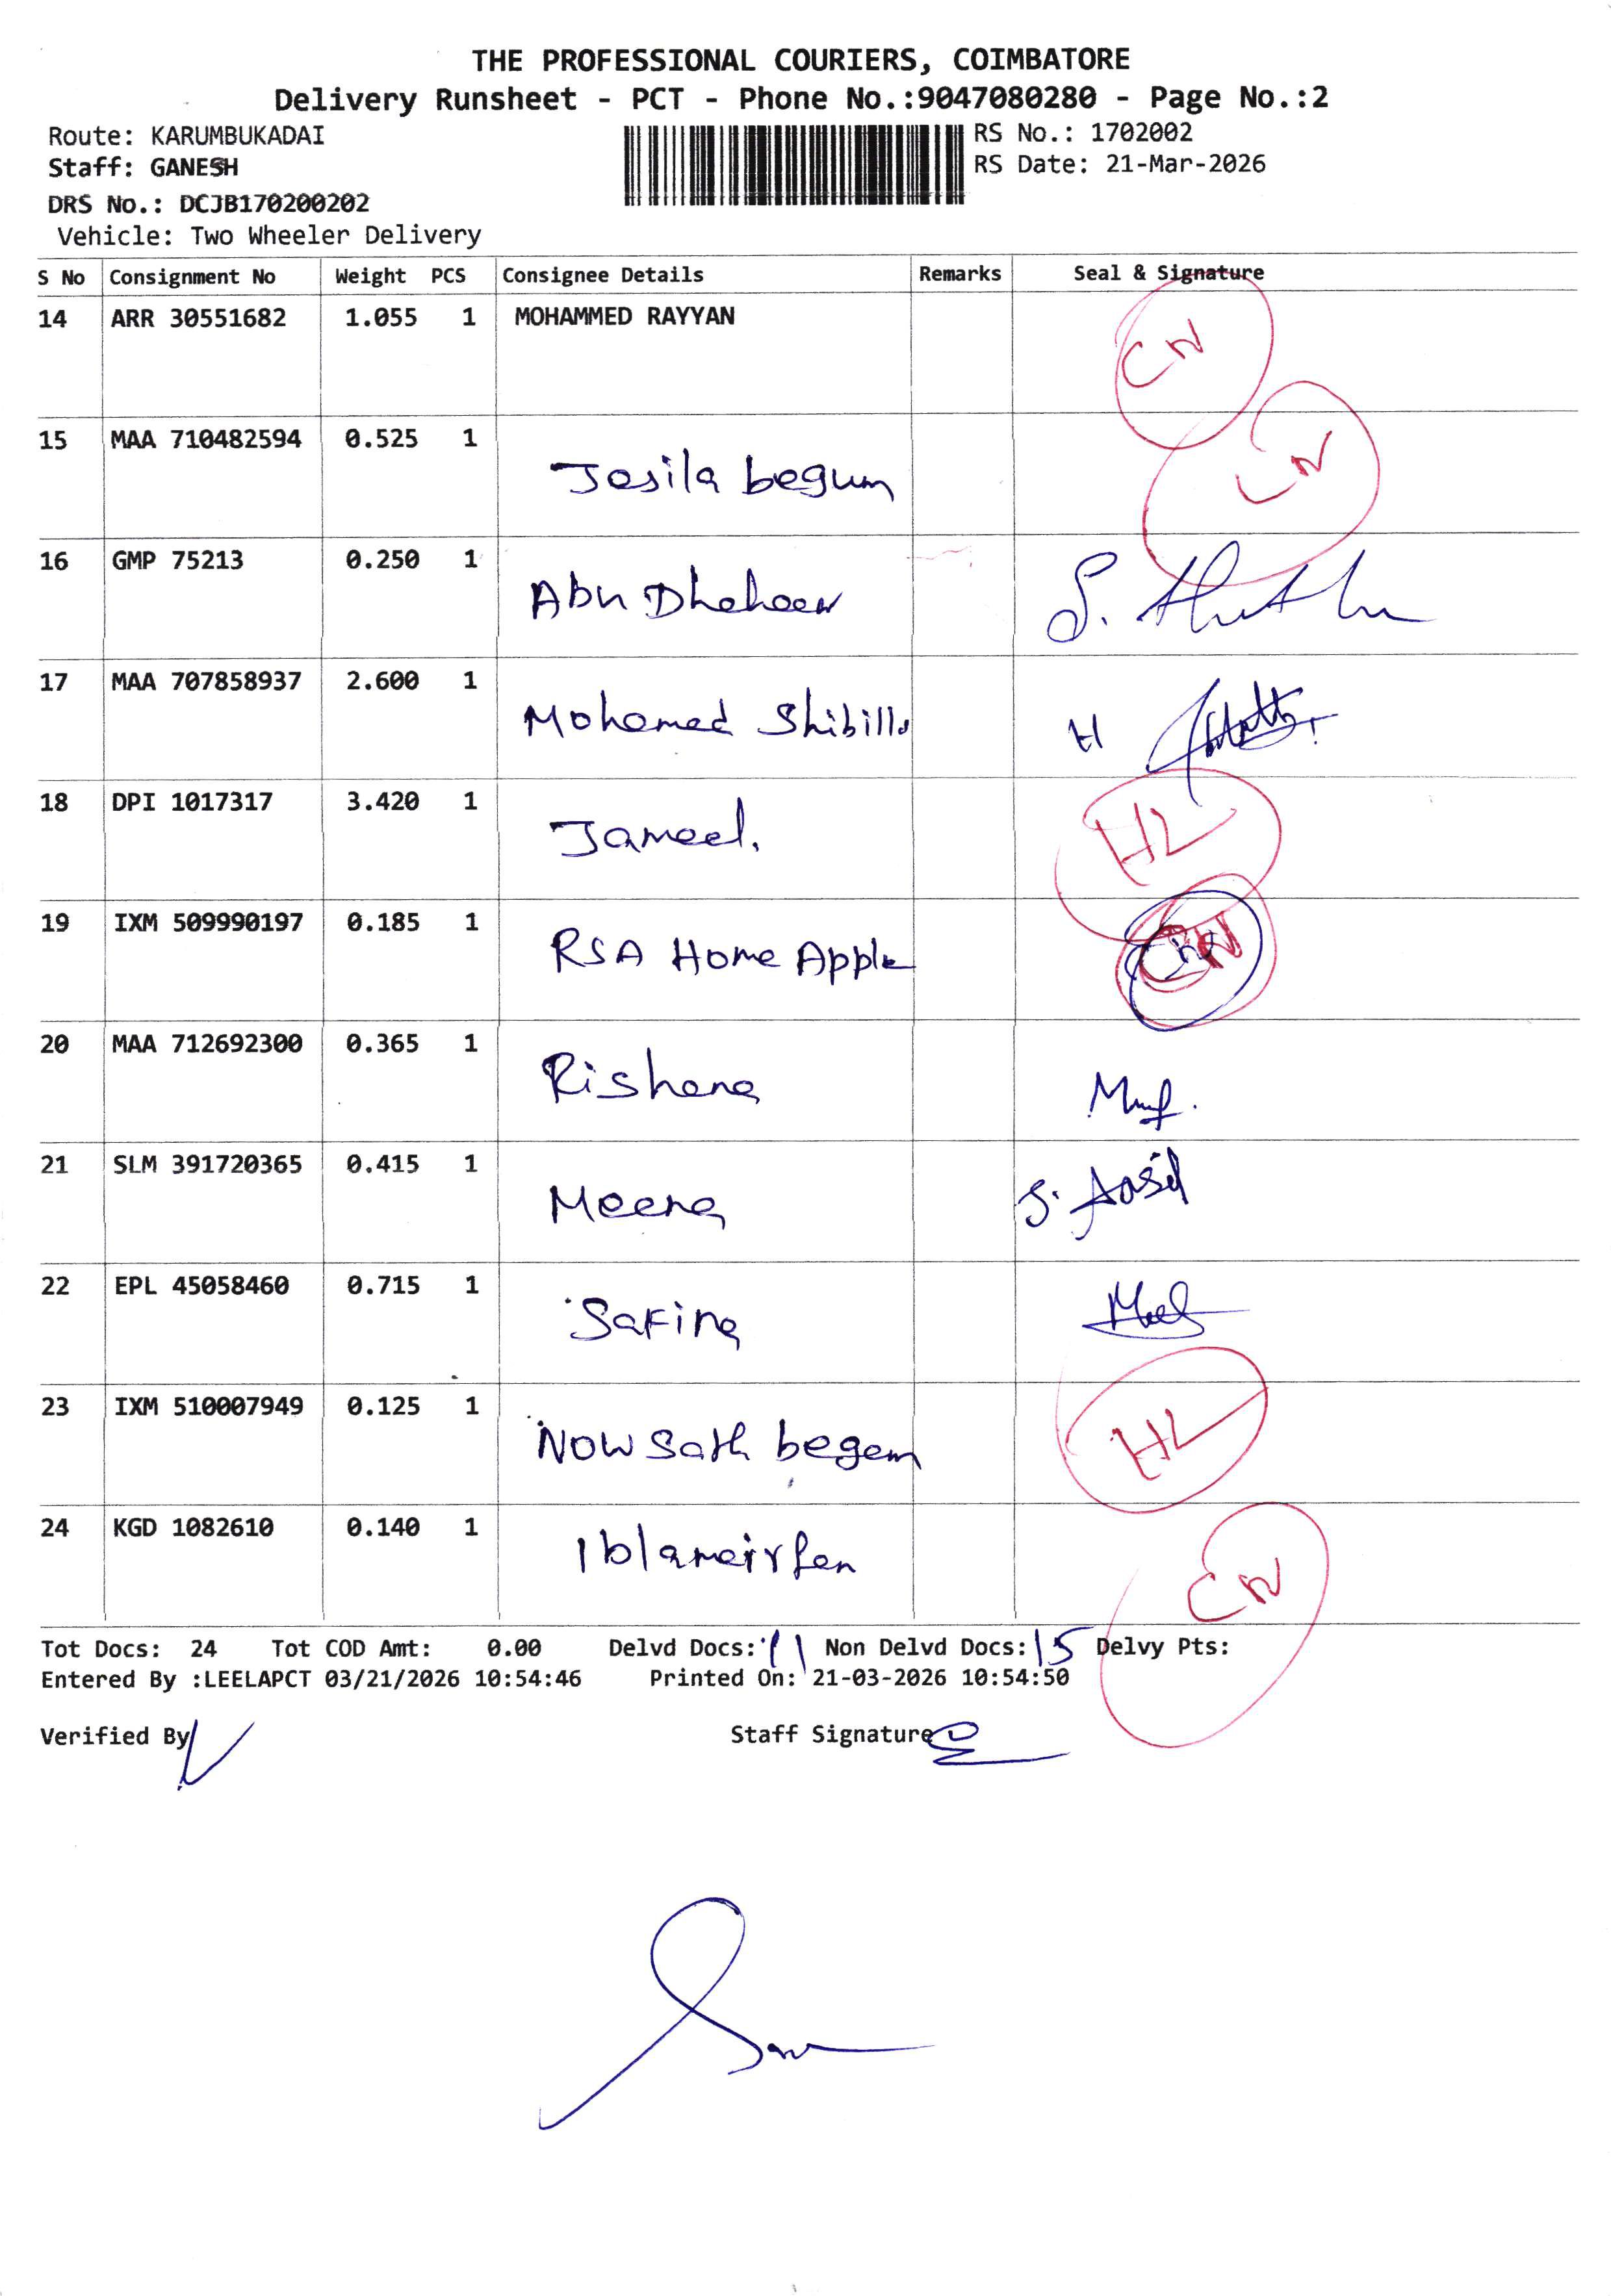 THE PROFESSIONAL COURIERS, COIMBATORE
Delivery Runsheet - PCT - Phone No.:9047080280 - Page No.:2
Route: KARUMBUKADAI
RS No.: 1702002
Staff: GANESH
RS Date: 21-Mar-2026
DRS No.: DCJB170200202
Vehicle: Two Wheeler Delivery
S No Consignment No Weight PCS Consignee Details Remarks Seal & Signature
14 ARR 30551682 1.055 1 MOHAMMED RAYYAN CN
15 MAA 710482594 0.525 1 Josila begum CN
16 GMP 75213 0.250 1 Abu Dhaheer
17 MAA 707858937 2.600 1 Mohamed Shibill H
18 DPI 1017317 3.420 1 Jameel. HL
19 IXM 509990197 0.185 1 RSA Home Apple CN
20 MAA 712692300 0.365 1 Rishana
21 SLM 391720365 0.415 1 Meena S. Aasil
22 EPL 45058460 0.715 1 Safina
23 IXM 510007949 0.125 1 Now Sath begem HL
24 KGD 1082610 0.140 1 CN
Tot Docs: 24 Tot COD Amt: 0.00 Delvd Docs: 11 Non Delvd Docs: 15 Delvy Pts:
Entered By :LEELAPCT 03/21/2026 10:54:46 Printed On: 21-03-2026 10:54:50
Verified By Staff Signature